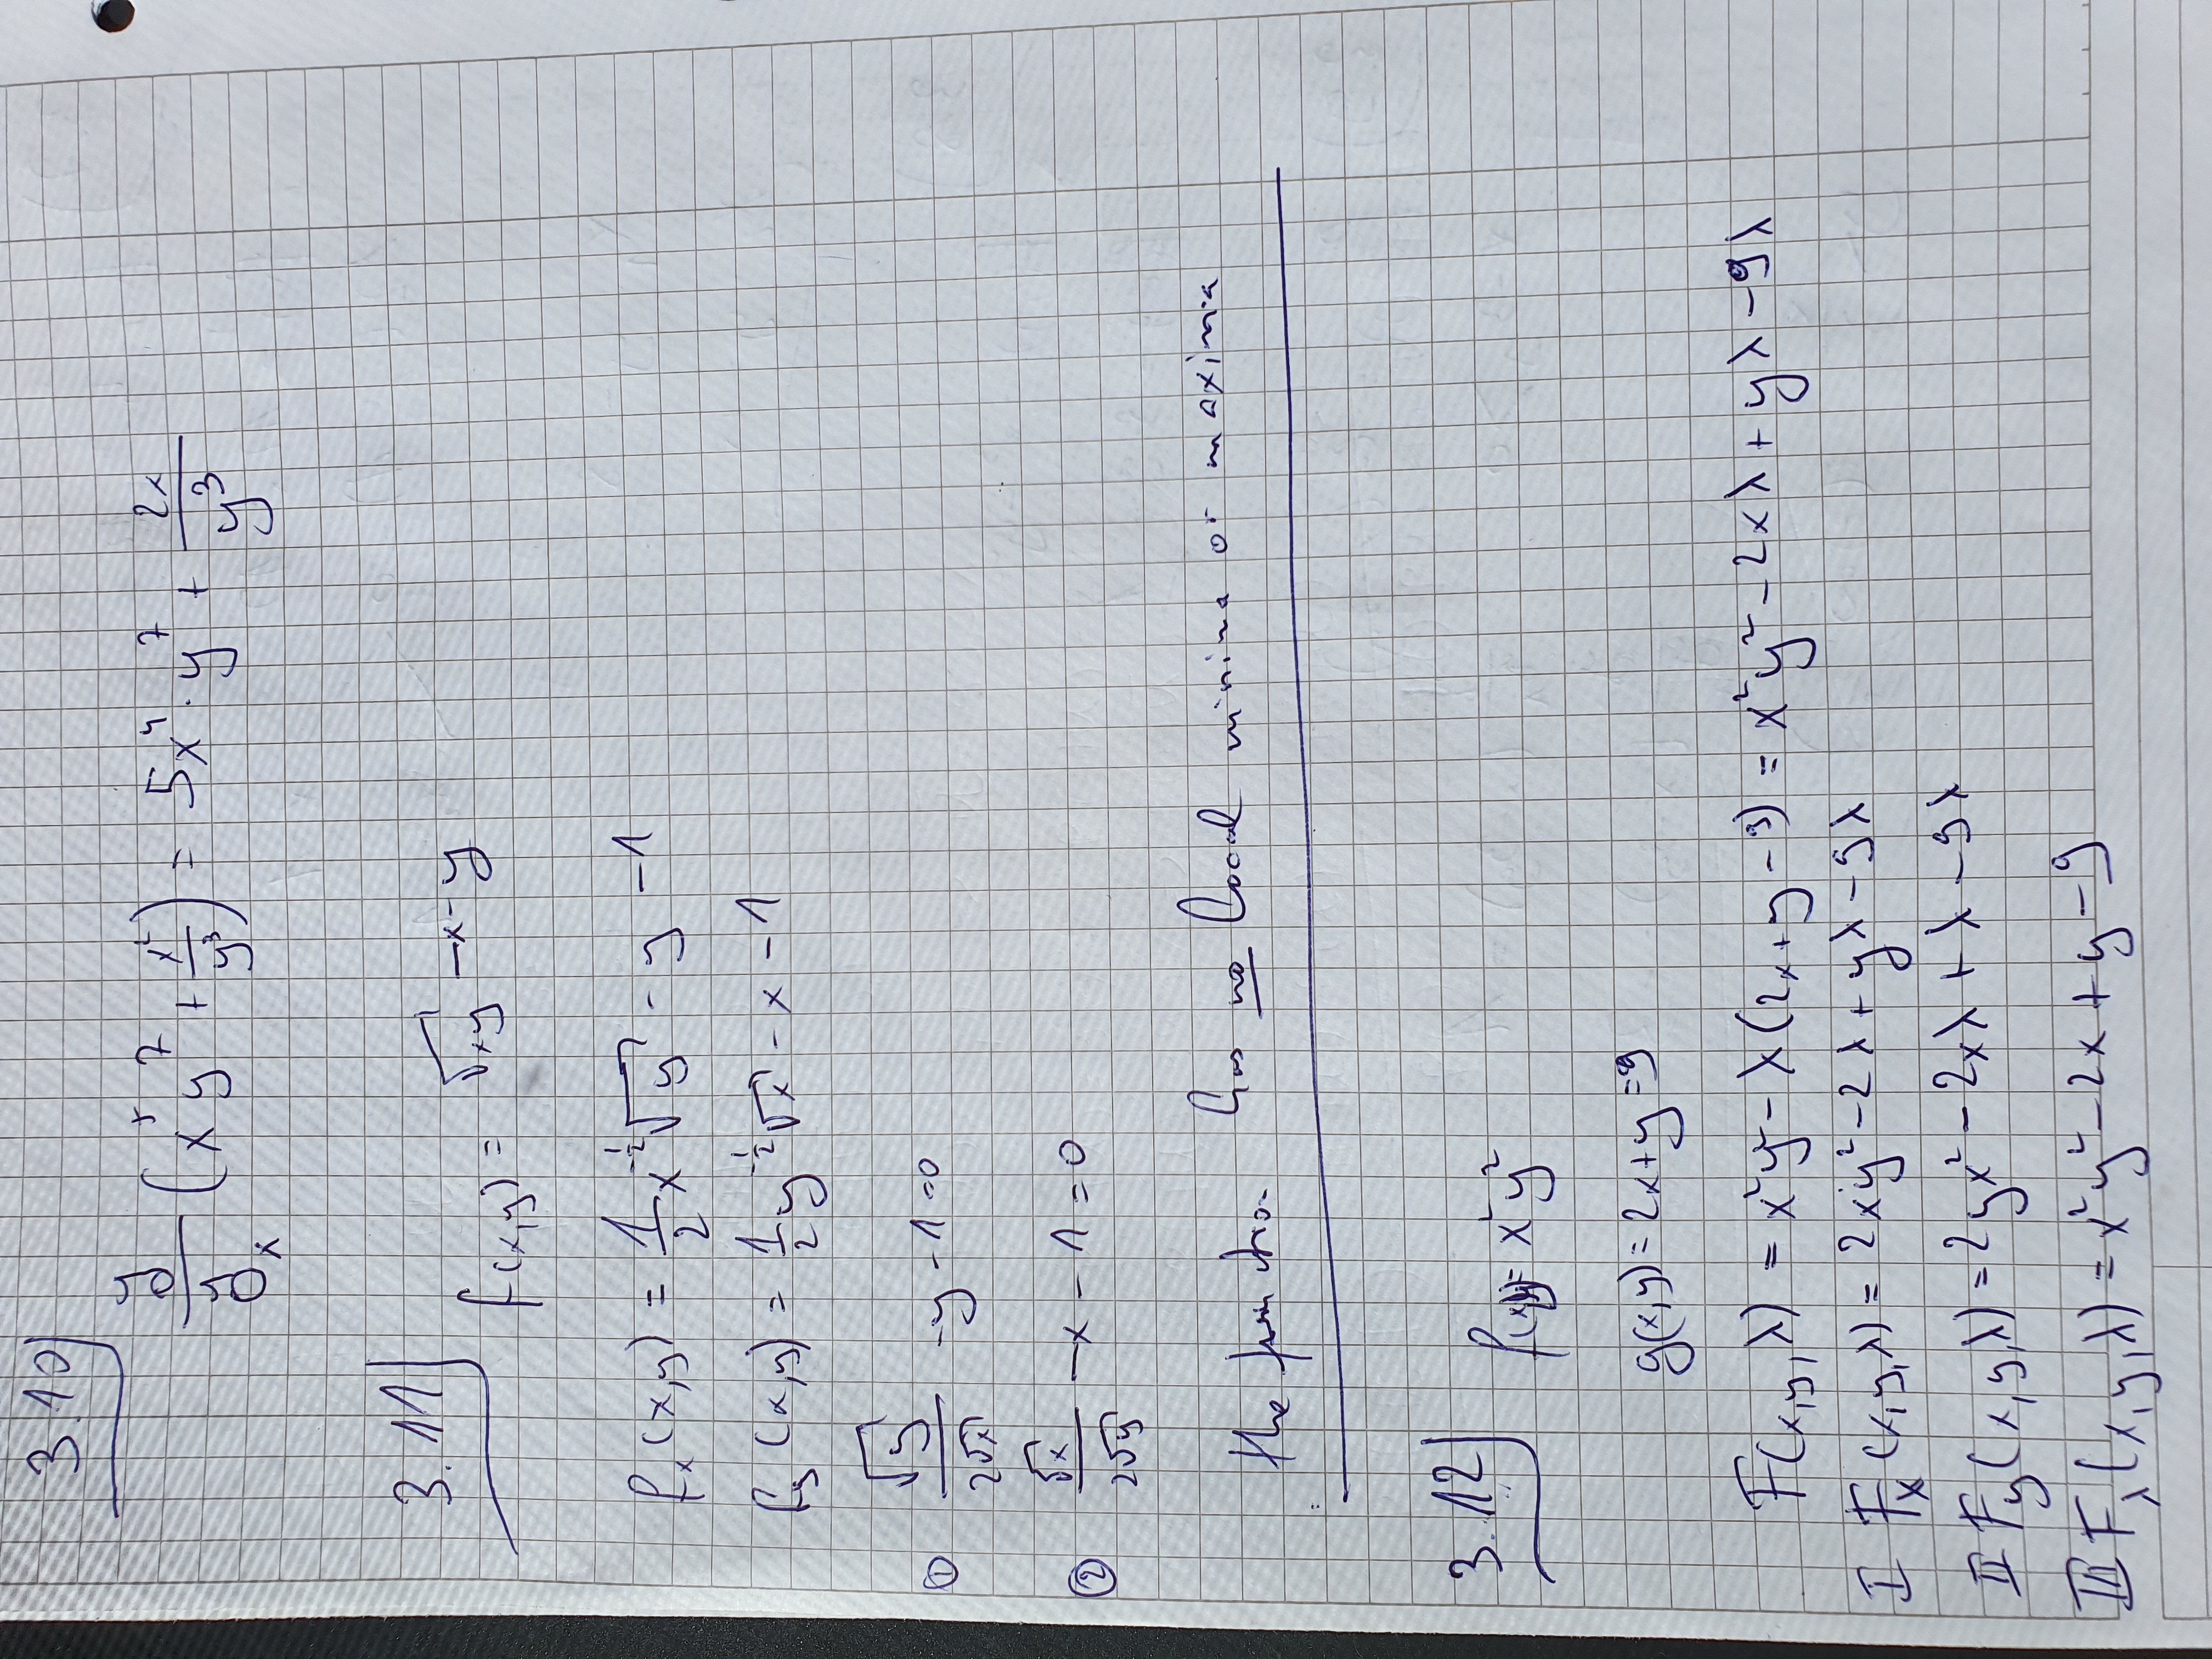 3.10
∂/∂x (x⁺y⁷ + x²/y³) = 5x⁴·y⁷ + 2x/y³
3.11
f(x,y) = √xy -x-y
fx (x,y) = 1/2 x^-1/2 √y - y -1
fy (x,y) = 1/2 y^-1/2 √x - x - 1
① √y/2√x -y -1 =0
② √x/2√y -x -1 =0
the function has no local minima or maxima
3.12
f(x,y)= x²y²
g(x,y)= 2x+y=9
F(x,y,λ) = x²y² - λ(2x+y-9) = x²y² - 2xλ + yλ - 9λ
I Fx (x,y,λ) = 2xy² - 2λ + yλ - 9λ
II Fy (x,y,λ) = 2yx² - 2xλ + λ - 9λ
III Fλ (x,y,λ) = x²y² - 2x + y - 9